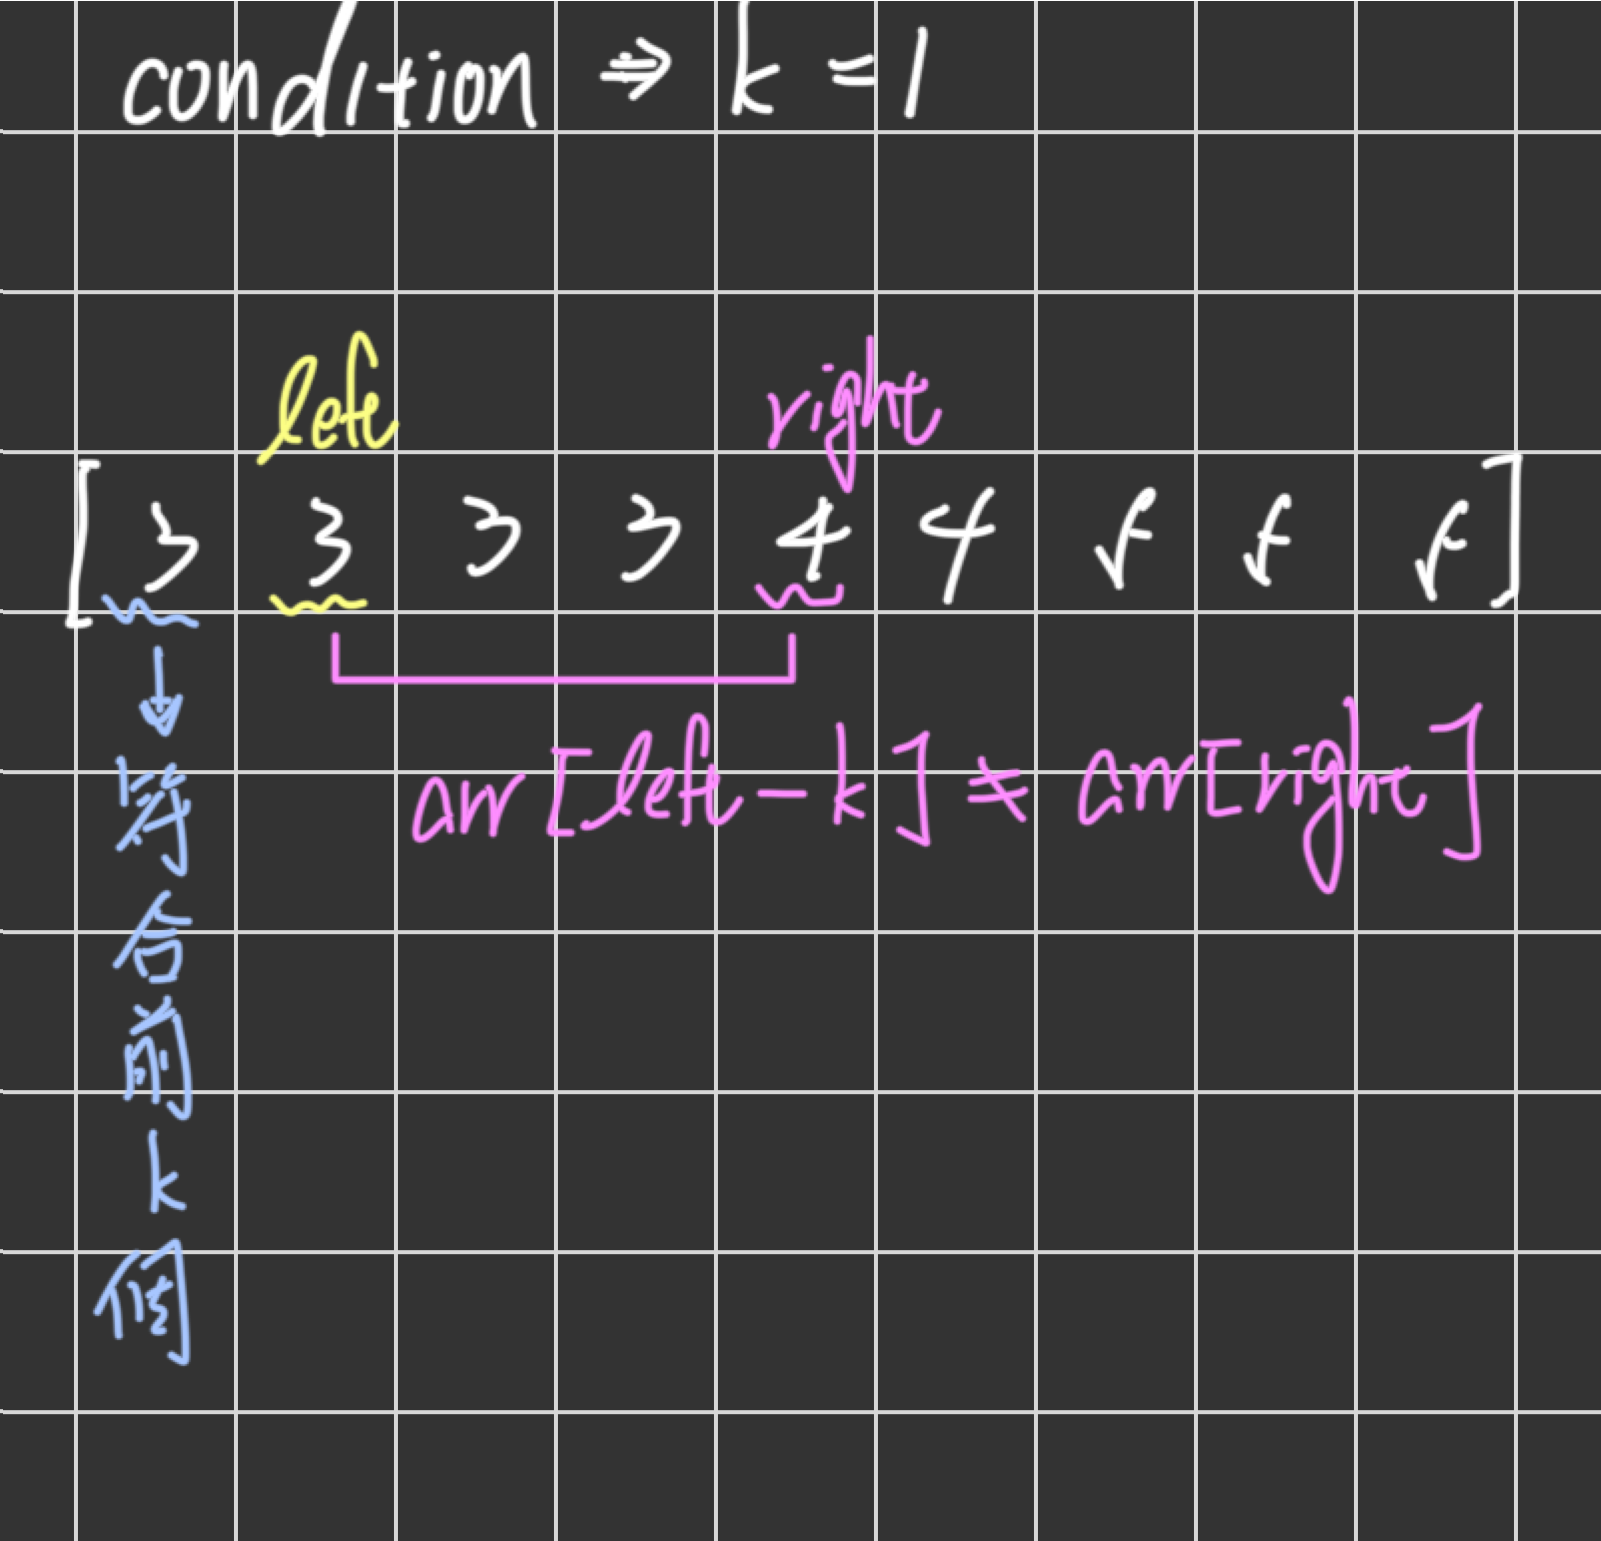 condition ⇒ k = 1
left right
[ 3 3 3 3 4 4 5 5 5 ]
arr[left-k] ≠ arr[right]
符合前k個